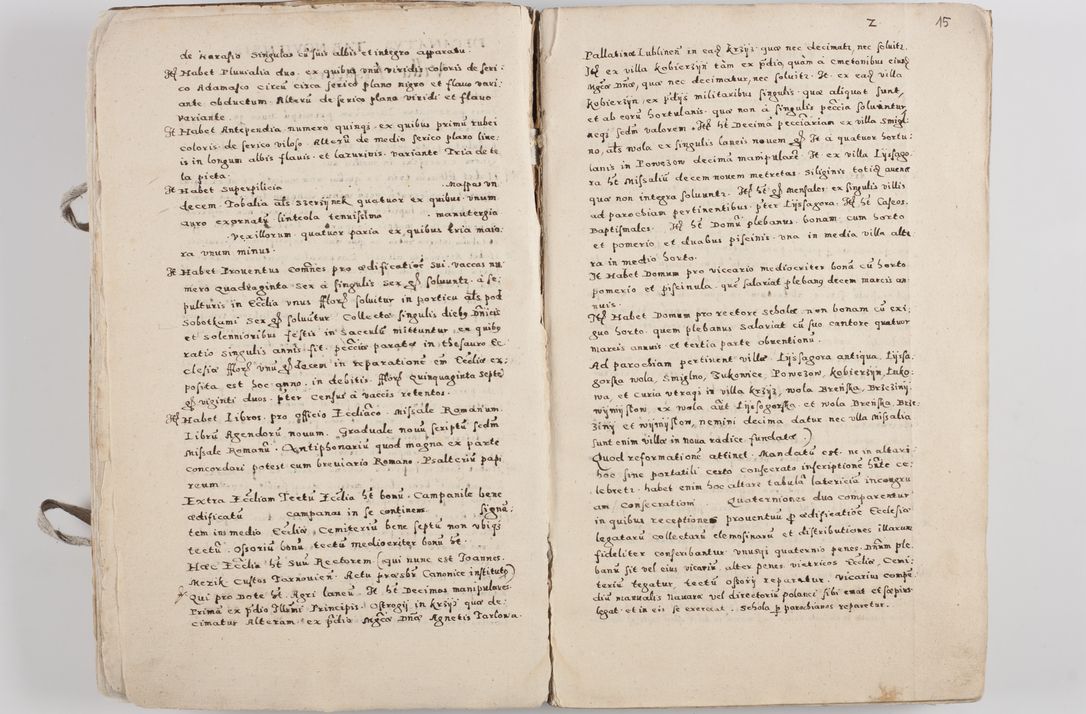 de karasio singulas cū suis albis et integro apparatu.
Itē Habet Pluvialia duo. ex quibus unū viridis coloris de seri-
co Adamasco circū circa serico plano nigro et flavo vari-
ante obductum. Alterū de serico plano viridi et flavo
variante.
Itē Habet Antependia numero quinqȝ. ex quibus primū rubei
coloris. de serico viloso. Alterū de medio serico plano line-
is in longum albis flavis. et lazurinis. variante Tria de te
la picta.
It Habet superpilicia . Mappas un
decem. Tobalia als szerzynek quatuor ex quibus. unum
auro exornatū linteola tenuissimo . manutergia
. vexillorum. quatuor paria ex quibus tria maio-
ra unum minus.
Itē Habet Proventus comunes pro ædificatioē sui. vaccas nu-
mero Quadraginta sex à singulis sex gȓ soluuntȝ. à se-
pulturis in Ecclia unus fflorȝ soluitur in porticu als pod
Sobotkami sex gȓ soluūtur. Collecta singulis dieb9 Dnicis
et solennioribus festis in sacculū mittuntur. ex quib9
ratio singulis annis fit. peccūia parata in thesauro Ec
clesiæ fflorȝ unū gȓ decem in reparationē em Eccliæ ex-
posita est hoc anno. in debitis. fflorȝ Quinquaginta septē
gȓ viginti duos. pter Censu à vaccis retentos.
Itē Habet Libros. pro officio Ecclaico. Missale Romanum.
Librū Agendorū novum. Graduale novū scriptū sedm
Missale Romanū. Antiphonariū quod magna ex parte
concordari potest cum breviario Romano. Psalteriū papi
reum.
Extra Eccliam Tectū Ecclia ht bonū. Campanile bene
ædificatū campanas in se continens. signa-
tem in medio Eccliæ, Cemiteriū bene septū non ubiqȝ
tectū. Ossoriū bonū, tectū mediocriter bonū ht.
Hæc Ecclia ht suū Rectorem (qui nunc est Joannes.
Merik Custos Tarnovien. Actu præsbr Canonice institut9)
Qui pro Dote ht. Agri laneū. It ht Decimas manipulares.
Primā ex pdio Illmi Principis. Ostrogij in krzyż quæ de-
cimatur Alteram. ex pdio Mgcæ Dnæ Agnetis Tarlowa
Z 15
Pallatinæ Lublinen in eaȝ krzyż. quæ nec decimatȝ, nec soluitȝ.
Itē ex villa Kobierzyn tàm ex pdio, quàm à cmetonibus eiusȝ
Mgcæ Dnæ, quæ nec decimatur, nec soluitȝ. It. ex eaȝ villa
Kobierzyn, ex pdijs militaribus singulis. quæ aliquot sunt,
et ab eorū hortulanis. quæ non à singulis peccīa soluuntur
neqȝ sedm valorem. Itē ht Decimā pecciāriam ex villa Smigl-
no, als wola ex singulis laneis novem gȓ. It à quatuor hortu-
lanis in Powęzow decimā manipularē. It ex villa Lyssago-
ra ht Missaliū decem novem metretas. Siliginis totiȝ avenæ
quæ non integra soluuntȝ. Itē ht gȓ mensales. ex singulis villis
ad parochiam pertinentibus. pter Lyssagora. Itē ht Caseos.
Baptismales. Itē ht Domū plebanus. bonam. cum horto
et pomerio. et duabus piscinis. una in media villa alte
ra in medio horto.
It Habet Domum pro viccario mediocriter bonā cū horto.
pomerio et piscinula. quē salariat pleban9 decem marcis an-
nuis.
Itē Habet Domum pro rectore scholæ non bonam cū exi-
guo horto. quem plebanus salariat cū suo cantore quatuor
marcis annuis et tertia parte obventionū.
Ad parochiam pertinent villæ. Lyssagora antiqua, Lyssa-
gorska wola, Smiglno, Żukowice, Powęzow, Kobierzyn, Łuko-
wa, et Curia utraqȝ in villa krzyż, wola Breńska, Brzeziny
wymysłow, ex wola aūt Lyssogorska, et wola Breńska, Brze-
ziny et wymysłow, nemini decima datur nec ulla Missalia
sunt enim villæ in nova radice fundatæ.
Quod reformationē attinet. Mandatū est. ne in altari
hoc sine portatili certo consecrato inscriptionē hnte ce-
lebretȝ. habet enim hoc altare tabulā latericiā incongru
am consecrationi Quaterniones duo comparentur
in quibus receptiones proventuū p ædificatioē Ecclesiæ
legatarū collectarū elemosinarū et distributiones illarum
fideliter conscribantur unusqȝ quaternio penes. Dnum ple-
banū sit vel eius vicariū. alter penes vitricos Eccliæ, Cemi-
teriū tegatur, tectū ossorij reparetur. Vicarius compē
diū manualis Navaræ vel directoriū polanci sibi emat et sæpius
legat. et in eis se exerceat. Schola p parochianos reparetur.